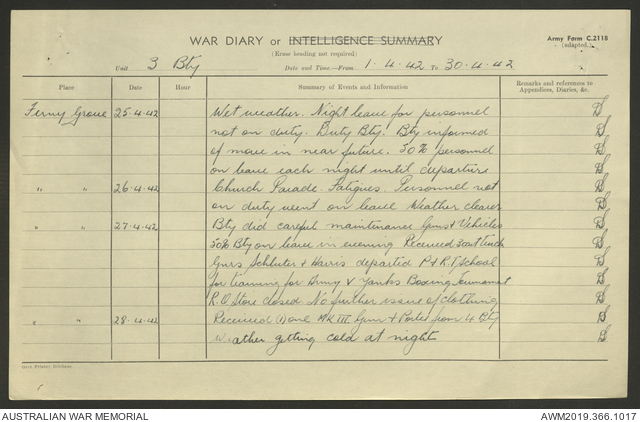 WAR DIARY or INTELLIGENCE SUMMARY
Army Form C.2118
(adapted.)
(Erase heading not required)
Unit 3 Bty Date and Time.—From 1.4.42 To 30.4.42
Place Date Hour Summary of Events and Information Remarks and references to
Appendices, Diaries, &c.
Ferny Grove 25.4.42 Wet weather. Night leave for personnel
not on duty. Duty Bty. Bty informed
of move in near future. 50% personnel
on leave each night until departure
" " 26.4.42 Church Parade. Fatigues. Personnel not
on duty went on leave Weather clearer
" " 27.4.42 Bty did careful maintenance Guns & Vehicles
50% Bty on leave in evening Received
Gnrs Schluter & Harris departed P & R.T. School
for training for Army V Yanks Boxing Tournament
R.Q. Store closed No further issue of clothing
" " 28.4.42 Received (1) one MK III Gun & Portee from 4 Bty
Weather getting cold at night
AUSTRALIAN WAR MEMORIAL
AWM2019.366.1017